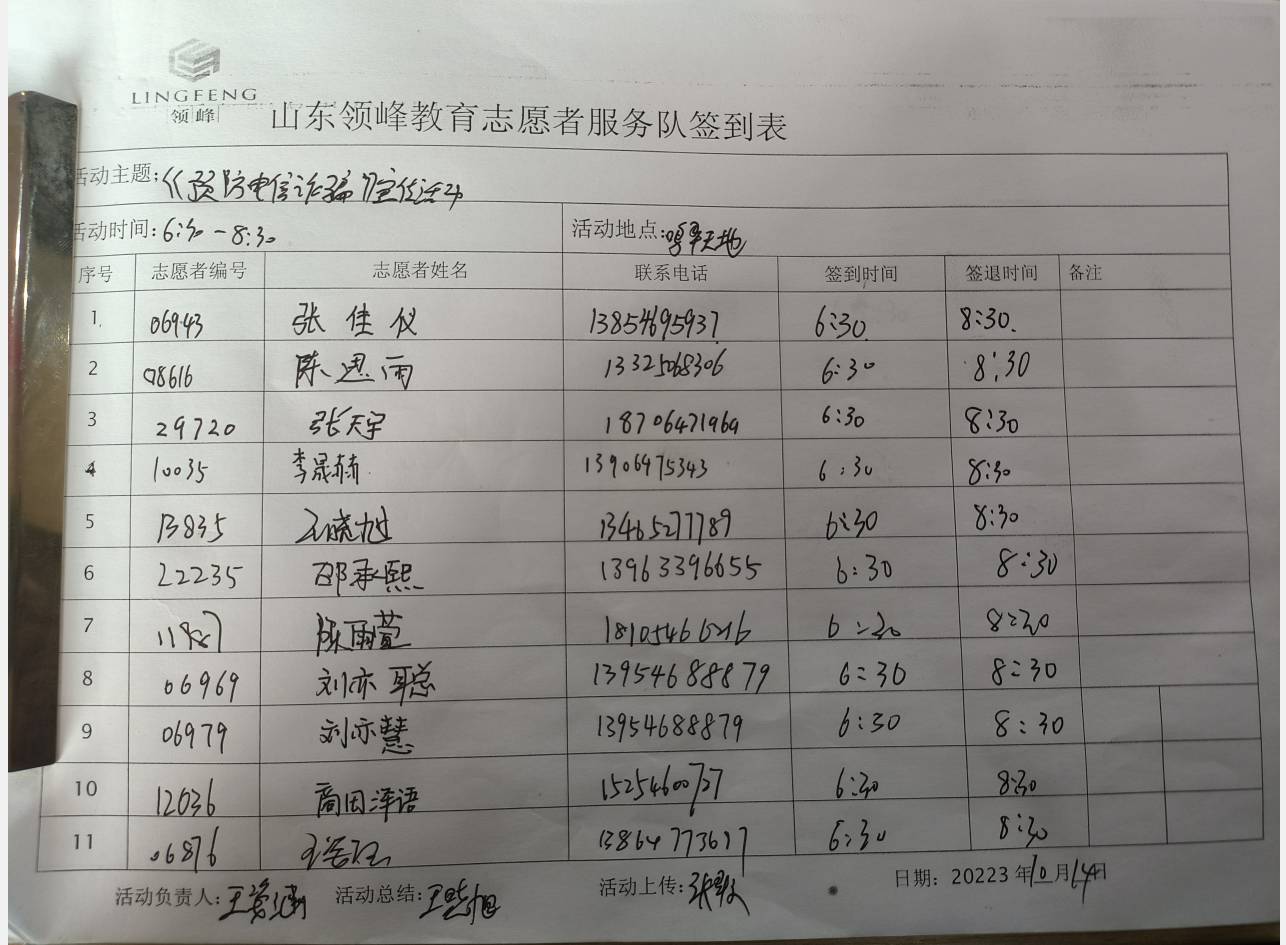 LINGFENG
领峰
山东领峰教育志愿者服务队签到表
活动主题:《预防电信诈骗》宣传活动
活动时间:6:30-8:30 活动地点:
序号 志愿者编号 志愿者姓名 联系电话 签到时间 签退时间 备注
1. 06943 张佳仪 13854695937 6:30 8:30.
2 08616 陈思雨 13325068306 6:30 8:30
3 29720 张天宇 18706471969 6:30 8:30
4 10035 李晟赫 13906475343 6:30 8:30
5 13835 王晓旭 13465277789 6:30 8:30
6 22235 邵承熙 13963396655 6:30 8:30
7 陈雨萱 6:30 8:30
8 06969 刘亦聪 13954688879 6:30 8:30
9 06979 刘亦慧 13954688879 6:30 8:30
10 12036 商因泽语 15254600727 6:30 8:30
11 06876 13864773617 6:30 8:30
活动负责人: 活动总结: 活动上传: 日期:20223年10月14日